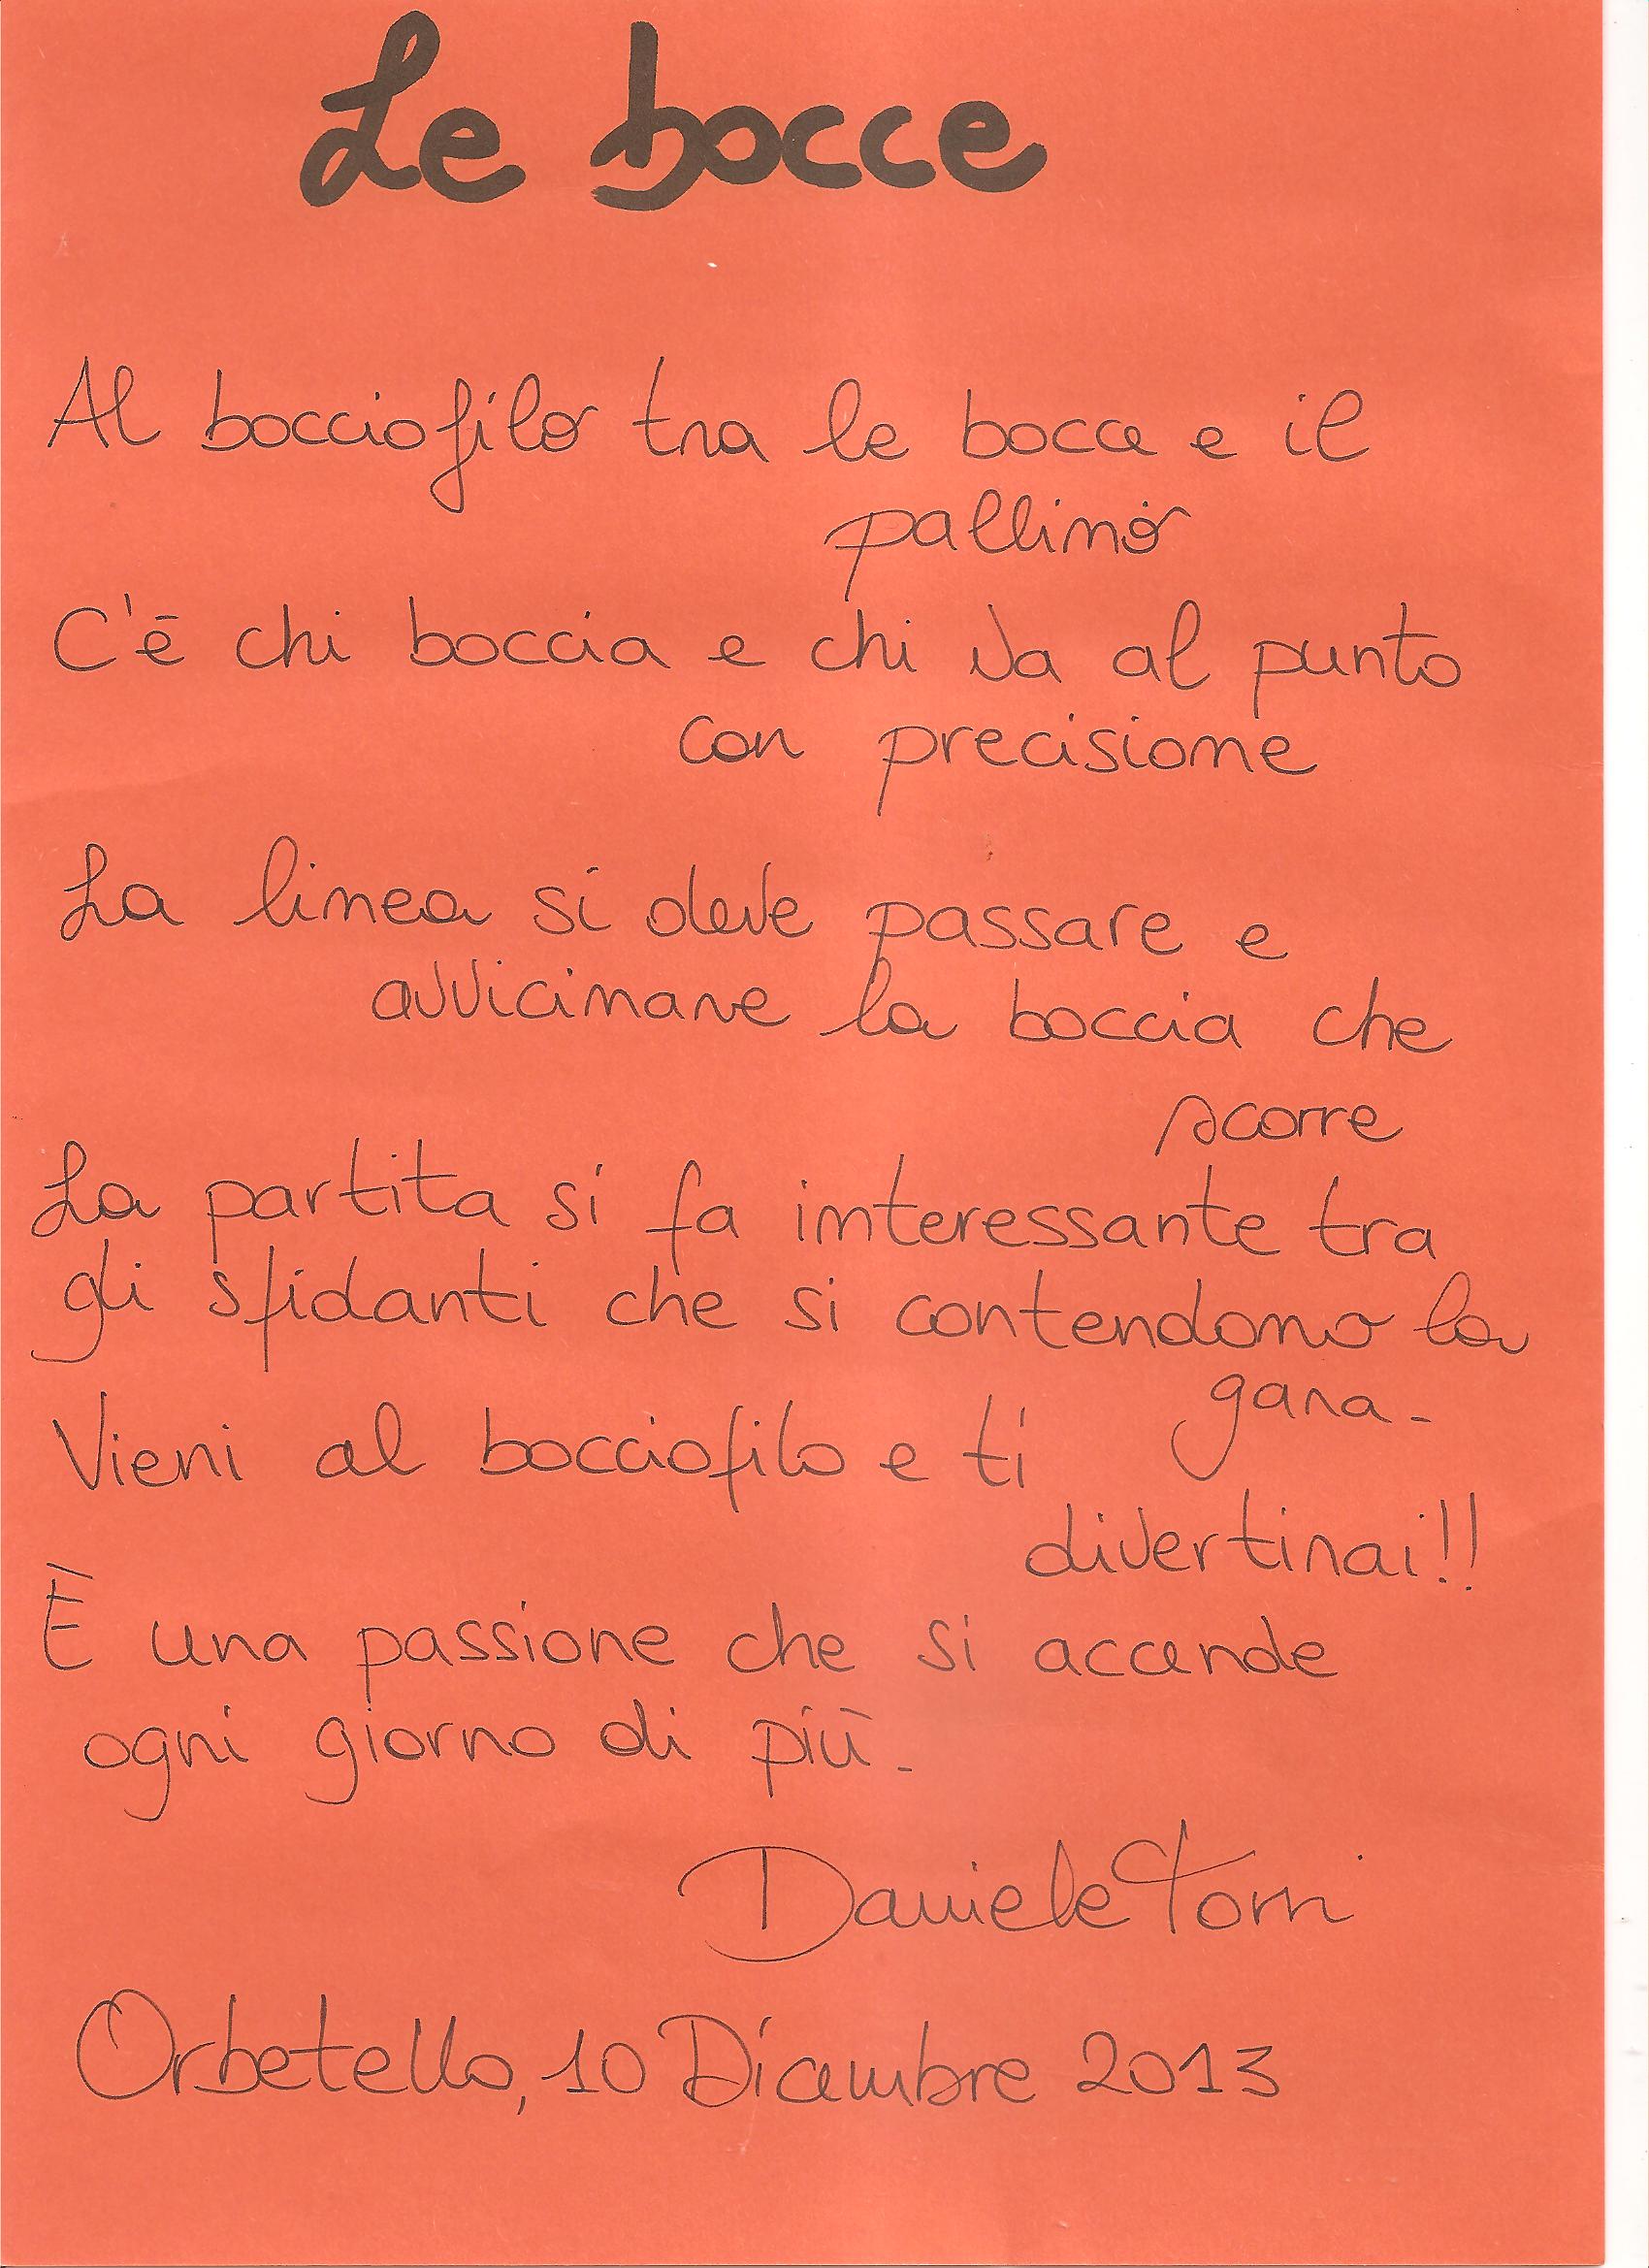 Le bocce
Al bocciofilo tra le bocce e il
pallino
C'è chi boccia e chi va al punto
con precisione
La linea si deve passare e
avvicinare la boccia che
scorre
La partita si fa interessante tra
gli sfidanti che si contendono la
gara.
Vieni al bocciofilo e ti
divertirai!!
È una passione che si accende
ogni giorno di più.
Daniele Torri
Orbetello, 10 Dicembre 2013